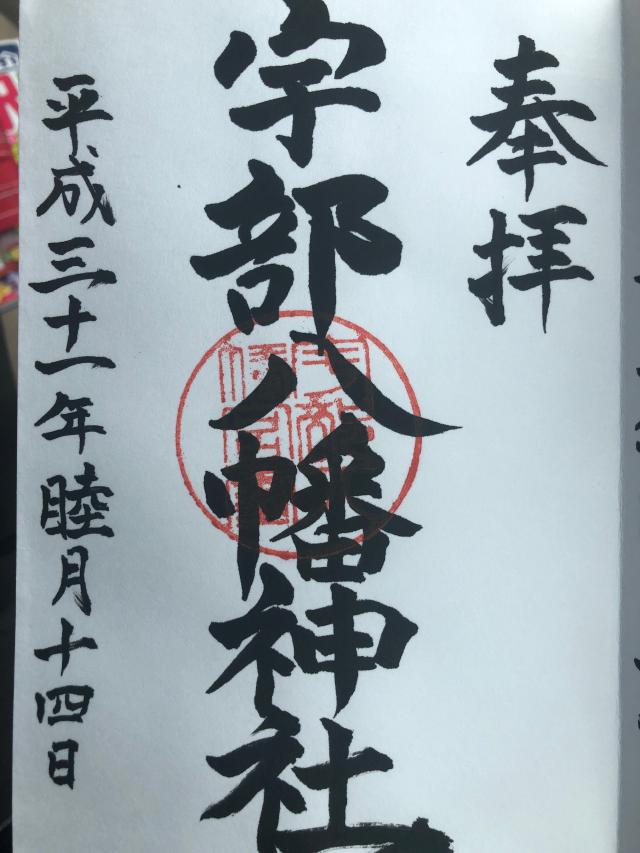 奉拝
宇部八幡神社
平成三十一年睦月十四日